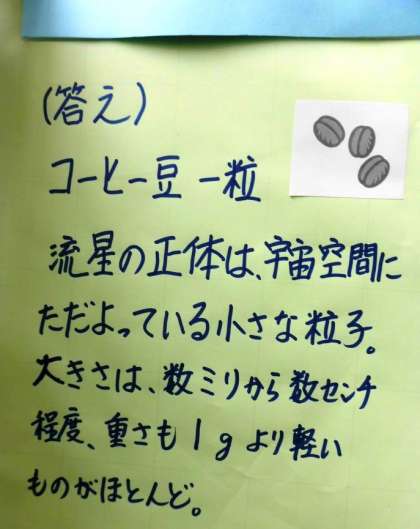 (答え)
コーヒー豆 一粒
流星の正体は、宇宙空間に
ただよっている小さな粒子。
大きさは、数ミリから数センチ
程度、重さも1gより軽い
ものがほとんど。